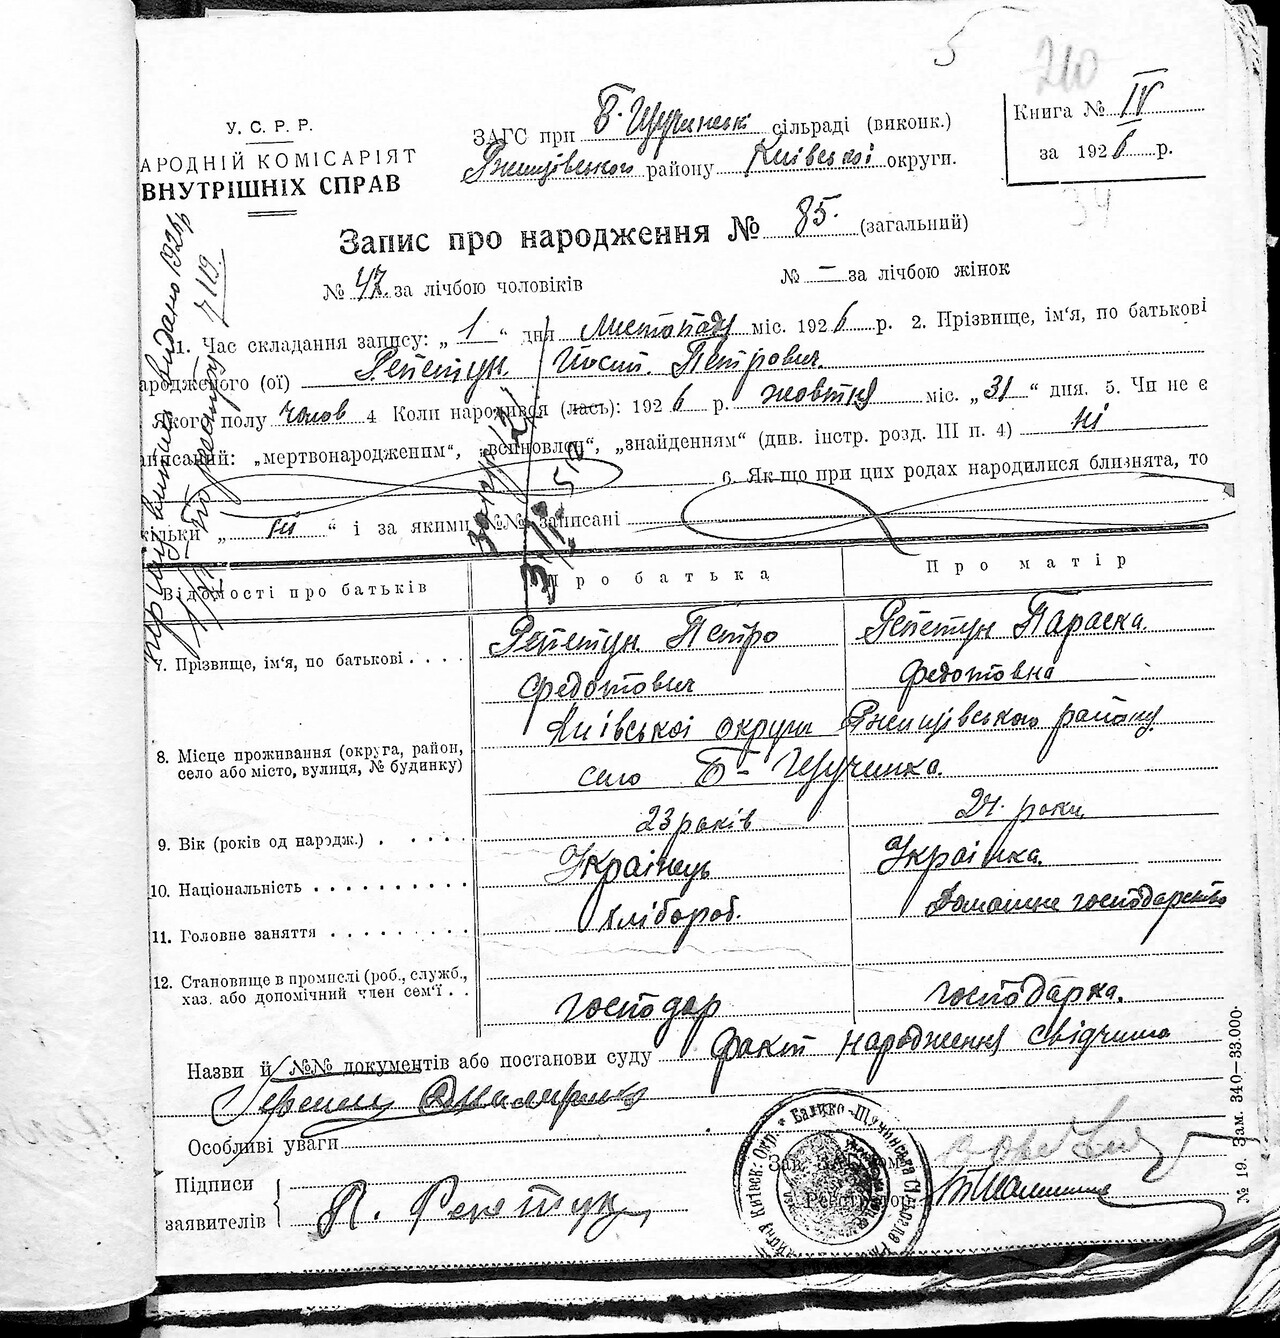 5
210
У. С. Р. Р.
АРОДНІЙ КОМІСАРІЯТ
ВНУТРІШНІХ СПРАВ
ЗАГС при Б. Щучинськ сільраді (виконк.)
Ржищівського району Київської округи.
Книга № IV
за 1926 р.
34
Запис про народження № 85. (загальний)
№ 47 за лічбою чоловіків
№ – за лічбою жінок
1. Час складання запису: „ 1 “ дня Листопаду міс. 1926 р. 2. Прізвище, ім'я, по батькові
ародженого (ої) Репетун Йосип Петрович.
Якого полу чолов 4 Коли народився (лась): 1926 р. жовтня міс. „31“ дня. 5. Чи не є
аписаний: „мертвонародженим“, „встановлен“, „знайденням“ (див. інстр. розд. III п. 4) ні
6. Як що при цих родах народилися близнята, то
кільки „ ні “ і за якими №№ записані
Відомості про батьків
Про батька
Про матір
7. Прізвище, ім'я, по батькові . . . .
Репетун Петро
Федотович
Репетун Параска
Федотовна
8. Місце проживання (округа, район,
село або місто, вулиця, № будинку)
Київської округи Ржищівського району
село Б-Щучинка.
9. Вік (років од народж.) . . . . .
23 років
24. роки
10. Національність . . . . . . . . . .
Українець
Українка.
11. Головне заняття . . . . . . . . .
хлібороб.
Домашнє господарство
12. Становище в промислі (роб., служб.,
хаз. або допомічний член сем'ї . .
господар
господарка.
Назви й №№ документів або постанови суду факт народження свідчить
Особливі уваги
Підписи
заявителів
П. Репетун
Зав.
Реєстратор
№ 19. Зам. 340—33.000